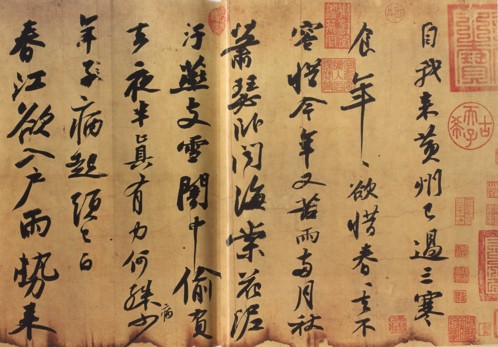 自我来黄州已過三寒
食年〻欲惜春〻去不
容惜今年又苦雨兩月秋
蕭瑟卧聞海棠花泥
汙燕支雪闇中偷負
去夜半真有力何殊少
病
年子病起頭已白
春江欲入户雨勢来
古希天子